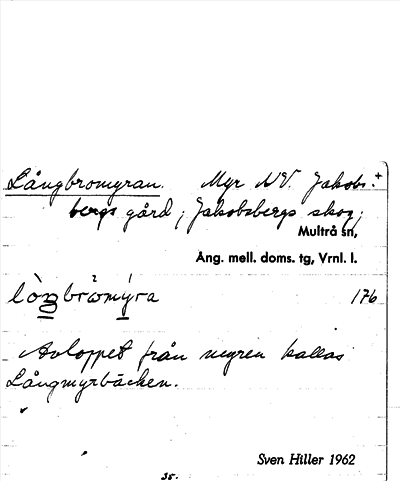 Långbromyran. Myr NV. Jakobs- +
bergs gård, Jakobsbergs skog,
Multrå sn,
Ång. mell. doms. tg, Vrnl. l.
176
Avloppet från myren kallas
Långmyrbäcken.
Sven Hiller 1962
35.